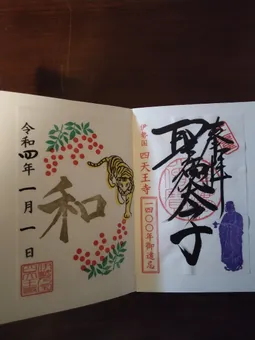 奉拝
聖徳太子
伊勢国 四天王寺
一四〇〇年御遠忌
和
令和四年一月一日